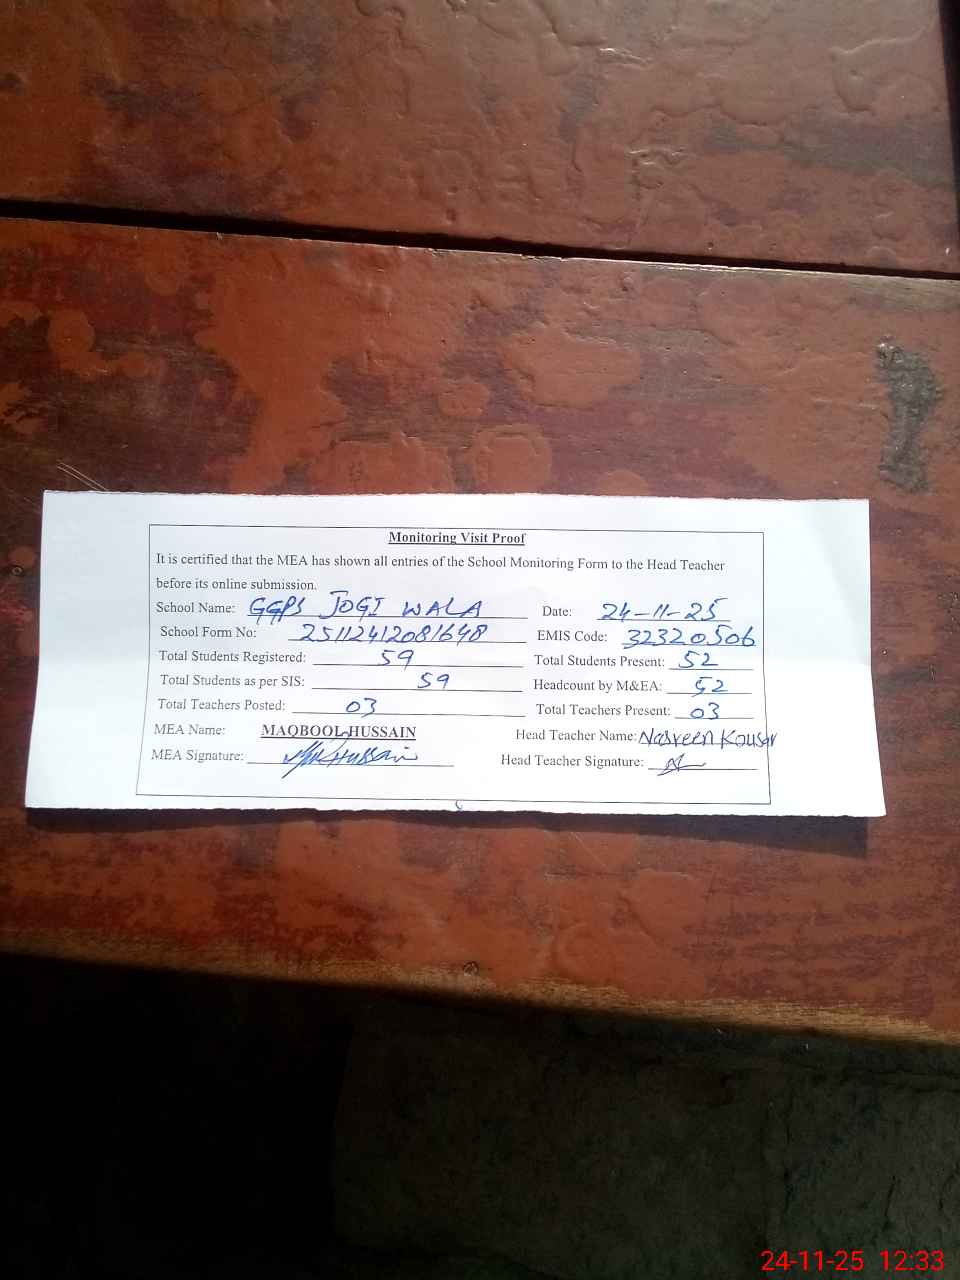 Monitoring Visit Proof
It is certified that the MEA has shown all entries of the School Monitoring Form to the Head Teacher
before its online submission.
School Name: GGPS JOGI WALA Date: 24-11-25
School Form No: 25112412081648 EMIS Code: 32320506
Total Students Registered: 59 Total Students Present: 52
Total Students as per SIS: 59 Headcount by M&EA: 52
Total Teachers Posted: 03 Total Teachers Present: 03
MEA Name: MAQBOOL HUSSAIN Head Teacher Name: Nasreen Kousar
MEA Signature: Hussain Head Teacher Signature:
24-11-25 12:33